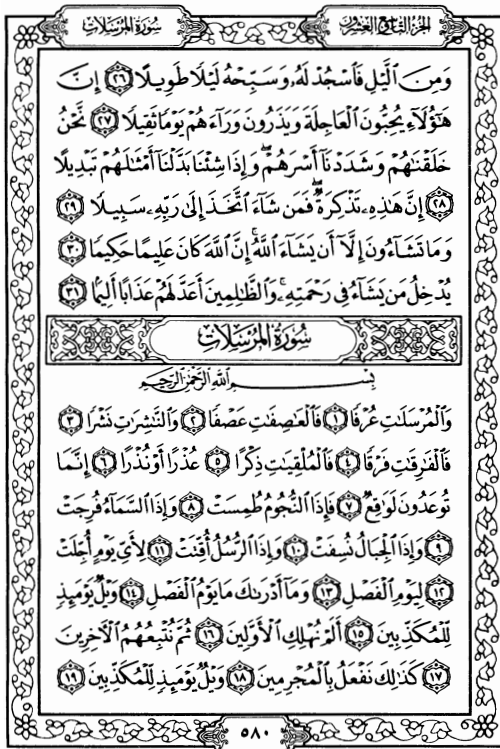 سُورَةُ المُرْسَلَاتِ
الجُزْءُ التَّاسِعُ وَالعِشْرُونَ
وَمِنَ ٱلَّيْلِ فَٱسْجُدْ لَهُۥ وَسَبِّحْهُ لَيْلًا طَوِيلًا ٢٦ إِنَّ
هَٰٓؤُلَآءِ يُحِبُّونَ ٱلْعَاجِلَةَ وَيَذَرُونَ وَرَآءَهُمْ يَوْمًا ثَقِيلًا ٢٧ نَّحْنُ
خَلَقْنَٰهُمْ وَشَدَدْنَآ أَسْرَهُمْ ۖ وَإِذَا شِئْنَا بَدَّلْنَآ أَمْثَٰلَهُمْ تَبْدِيلًا
٢٨ إِنَّ هَٰذِهِۦ تَذْكِرَةٌ ۖ فَمَن شَآءَ ٱتَّخَذَ إِلَىٰ رَبِّهِۦ سَبِيلًا ٢٩
وَمَا تَشَآءُونَ إِلَّآ أَن يَشَآءَ ٱللَّهُ ۚ إِنَّ ٱللَّهَ كَانَ عَلِيمًا حَكِيمًا ٣٠
يُدْخِلُ مَن يَشَآءُ فِى رَحْمَتِهِۦ ۚ وَٱلظَّٰلِمِينَ أَعَدَّ لَهُمْ عَذَابًا أَلِيمًۢا ٣١
سُورَةُ المُرْسَلَاتِ
بِسْمِ ٱللَّهِ ٱلرَّحْمَٰنِ ٱلرَّحِيمِ
وَٱلْمُرْسَلَٰتِ عُرْفًا ١ فَٱلْعَٰصِفَٰتِ عَصْفًا ٢ وَٱلنَّٰشِرَٰتِ نَشْرًا ٣
فَٱلْفَٰرِقَٰتِ فَرْقًا ٤ فَٱلْمُلْقِيَٰتِ ذِكْرًا ٥ عُذْرًا أَوْ نُذْرًا ٦ إِنَّمَا
تُوعَدُونَ لَوَٰقِعٌ ٧ فَإِذَا ٱلنُّجُومُ طُمِسَتْ ٨ وَإِذَا ٱلسَّمَآءُ فُرِجَتْ
٩ وَإِذَا ٱلْجِبَالُ نُسِفَتْ ١٠ وَإِذَا ٱلرُّسُلُ أُقِّتَتْ ١١ لِأَىِّ يَوْمٍ أُجِّلَتْ
١٢ لِيَوْمِ ٱلْفَصْلِ ١٣ وَمَآ أَدْرَىٰكَ مَا يَوْمُ ٱلْفَصْلِ ١٤ وَيْلٌ يَوْمَئِذٍ
لِّلْمُكَذِّبِينَ ١٥ أَلَمْ نُهْلِكِ ٱلْأَوَّلِينَ ١٦ ثُمَّ نُتْبِعُهُمُ ٱلْءَاخِرِينَ
١٧ كَذَٰلِكَ نَفْعَلُ بِٱلْمُجْرِمِينَ ١٨ وَيْلٌ يَوْمَئِذٍ لِّلْمُكَذِّبِينَ ١٩
٥٨٠